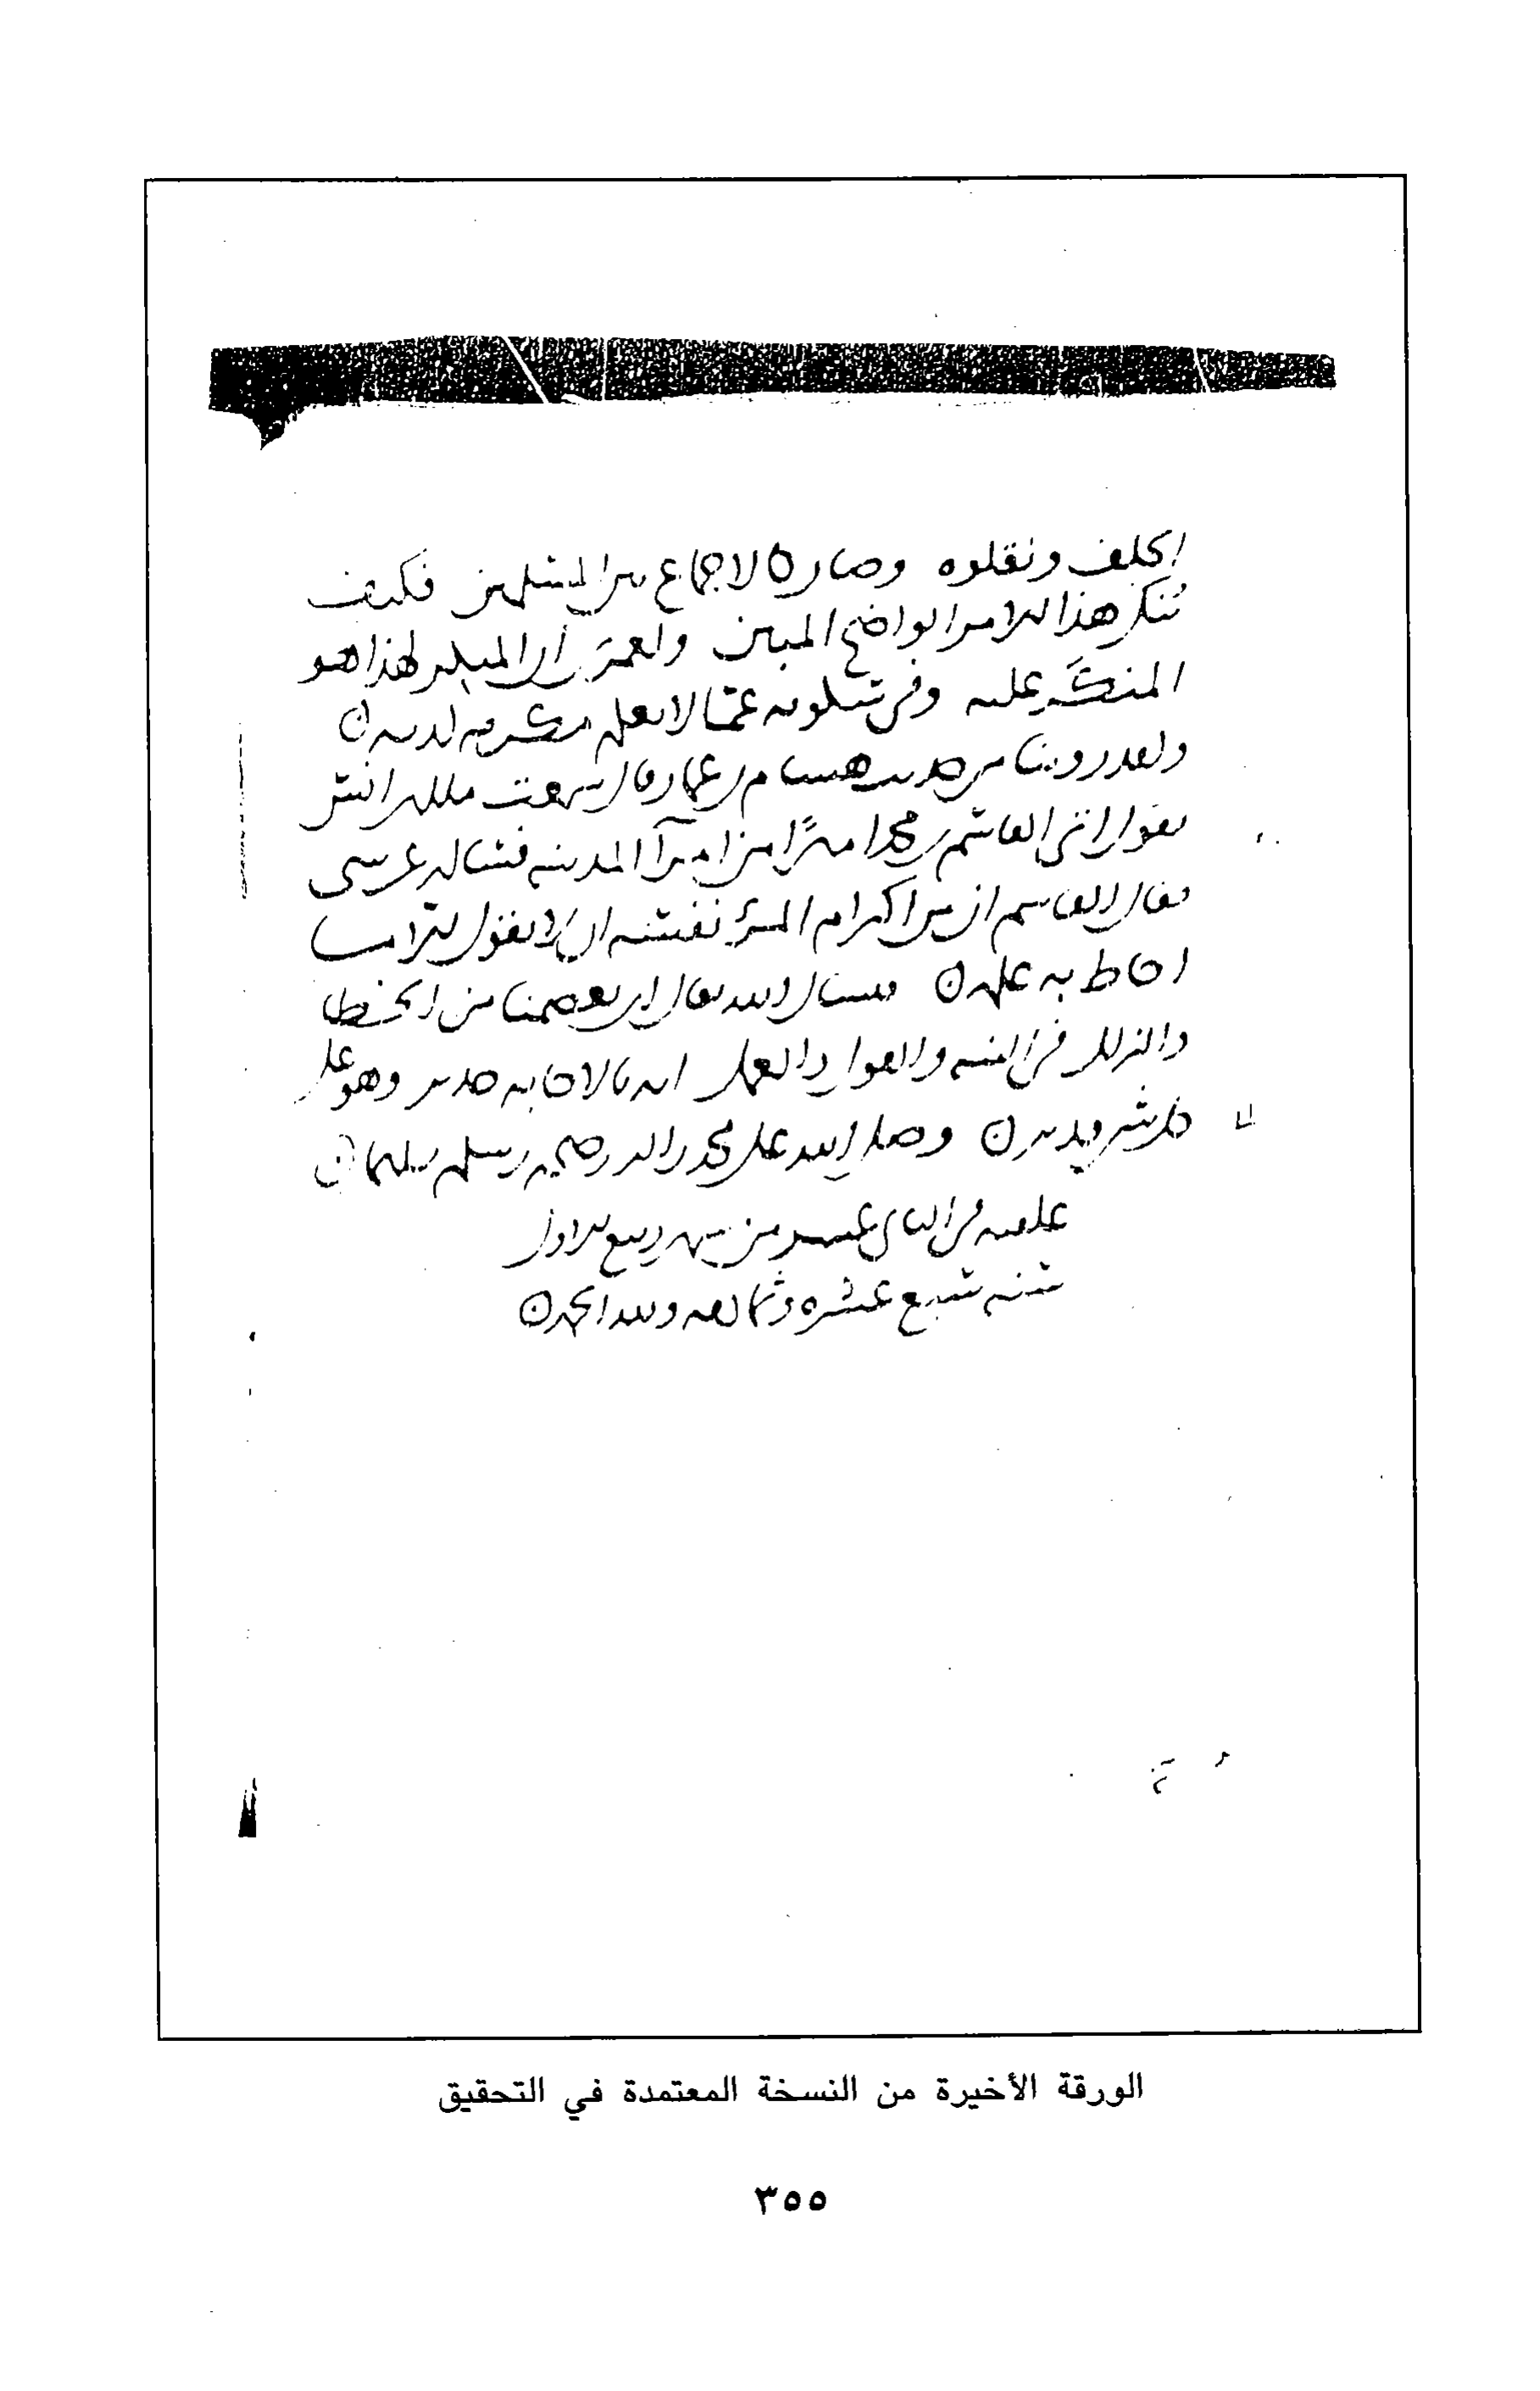 الخلف ونقلوه وصار كالاجماع من المسلمين فكيف
تنكر هذا الامر الواضح المبين ولعمري ان المنكر لهذا هو
المنكر عليه وفي سكوته عما لا يعلم مكرمه لديه
ولقد روينا من حديث هشام بن عمار قال سمعت ملك بن انس
يقول اتى القاسم بن محمد اميرا من امرآ المدينه فساله عن شي
فقال القاسم ان من اكرام المرء نفسه ان لا يقول الا ما
احاط به علمه فنسال الله تعالى ان يعصمنا من الخطا
والزلل في النيه والقول والعمل انه بالاجابه جدير وهو على
كل شي قدير وصلى الله على محمد واله وصحبه وسلم تسليما
علقه في الثاني عشر من شهر ربيع الاول
سنه سبع عشره وثمانمايه ولله الحمد
الورقة الأخيرة من النسخة المعتمدة في التحقيق
٣٥٥